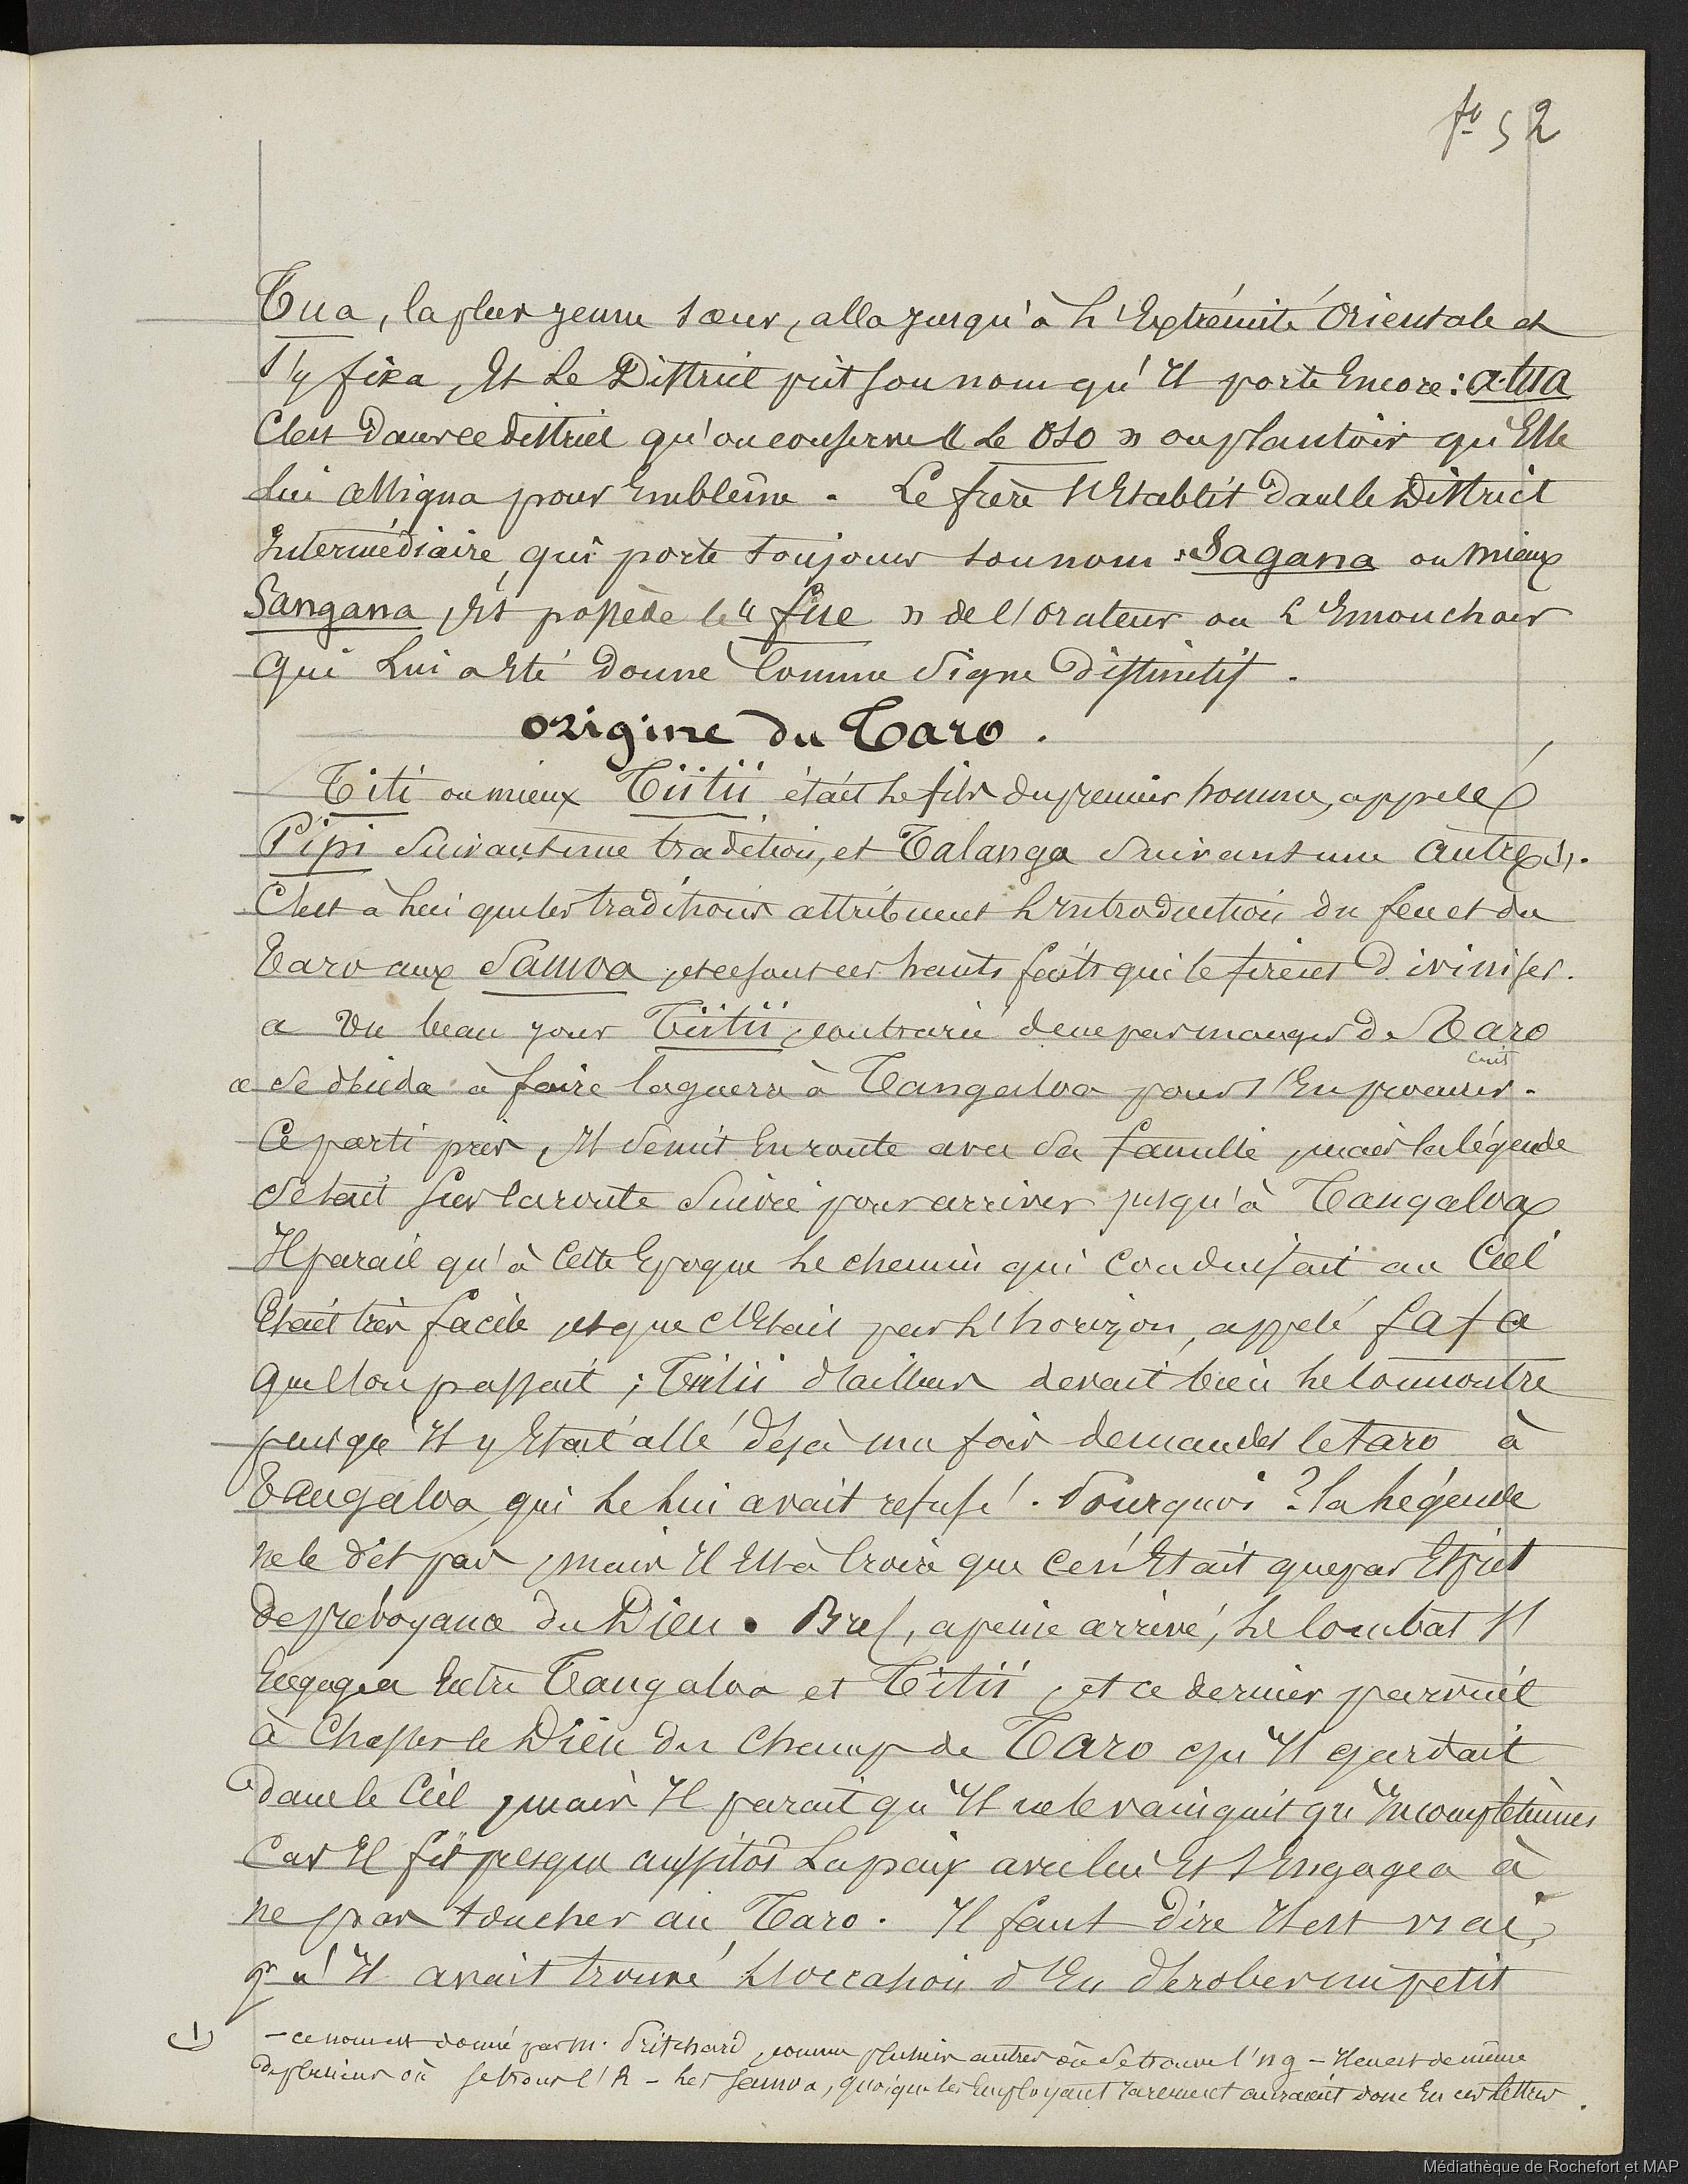 fo 52
Tua, la plus jeune sœur, alla jusqu'à l'Extrémité Orientale et
s'y fixa, Et Le District prit son nom qu'Il porte Encore : a-tua
C'est dans ce district qu'on conserve « Le Oso » ou plantoir qu'Elle
lui assigna pour Emblême. Le frère s'Etablit dans le District
Intermédiaire, qui porte toujours son nom : Sagana ou mieux
Sangana, Et possède le « fue » de l'orateur ou l'Emouchoir
qui Lui a Eté donné Comme Signe Distinctif.
origine du Taro.
Titi ou mieux Tiitii était le fils du premier homme, appelé
Pipi Suivant une tradition, et Talanga Suivant une autre (1).
C'est à lui que les traditions attribuent l'Introduction du feu et du
Taro aux Samoa, et ce sont ces hauts faits qui le firent Diviniser.
a Un beau jour Tiitii, contrarié de ne pas manger de Taro
cuit
a Se décida à faire la guerre à Tangaloa pour s'En procurer.
Ce parti pris, Il se mit En route avec Sa famille, mais la légende
Se tait Sur la route Suivie pour arriver jusqu'à Tangaloa
Il parait qu'à Cette Epoque le chemin qui Conduisait au Ciel
Etait très facile, et que c'Etait par l'horizon, appelé fafa
que l'on passait ; Tiitii d'ailleurs devait bien le connoitre
puisqu'Il y Etait allé déjà une fois demander le taro à
Tangaloa qui le lui avait refusé. Pourquoi ? la légende
ne le dit pas, mais Il Est à Croire que ce n'Etait que par Esprit
de prévoyance du Dieu. Bref, à peine arrivé, le Combat s'
Engagea Entre Tangaloa et Titii, et ce dernier parvint
à Chasser le Dieu du Champ de Taro qu'Il gardait
dans le Ciel, mais Il parait qu'Il ne le vainquit qu'Incomplètement
Car Il fit presque aussitôt La paix avec lui Et s'Engagea à
ne pas toucher au Taro. Il faut dire Il est vrai,
qu'Il avait trouvé l'occasion d'En dérober un petit
(1) – ce nom est donné par M. Pritchard, comme plusieurs autres où se trouve l'ng – Il en est de même
de plusieurs où se trouve l'R – Les Samoa, quoique les Employant rarement auraient donc Eu ces lettres.
Médiathèque de Rochefort et MAP